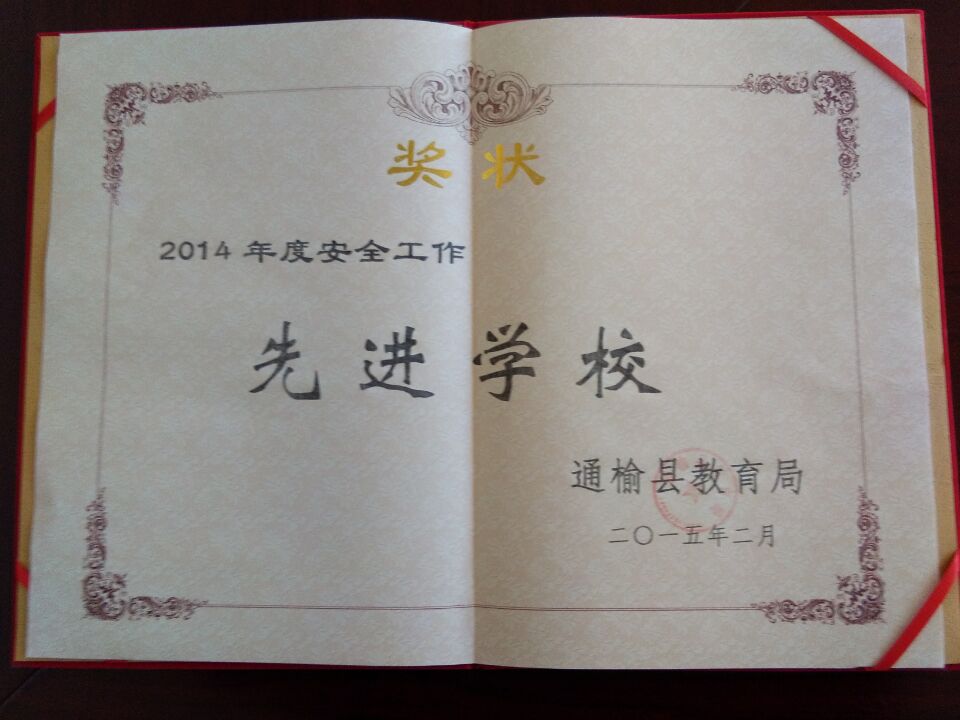 奖状
2014年度安全工作
先进学校
通榆县教育局
二〇一五年二月